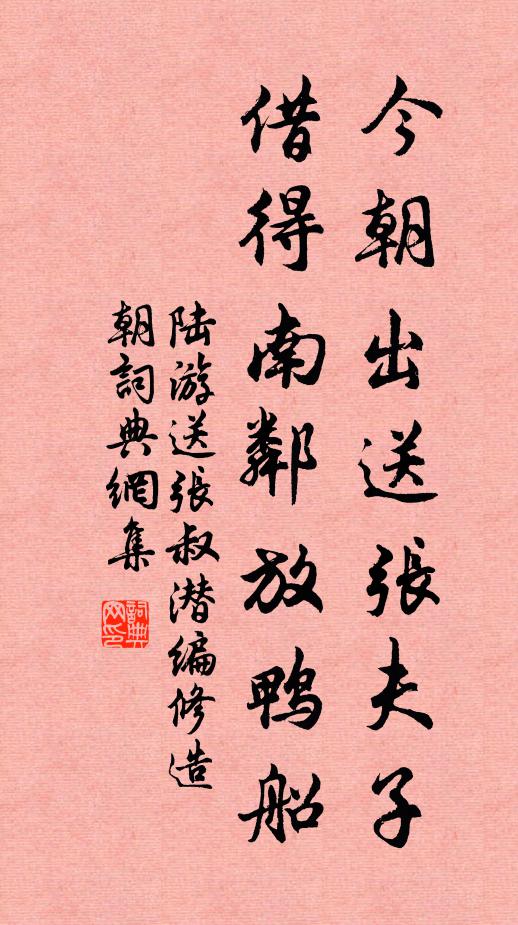 今朝出送張夫子
借得南鄰放鴨船
陆游送張叔潜編修造
朝詞典網集
詞典网印